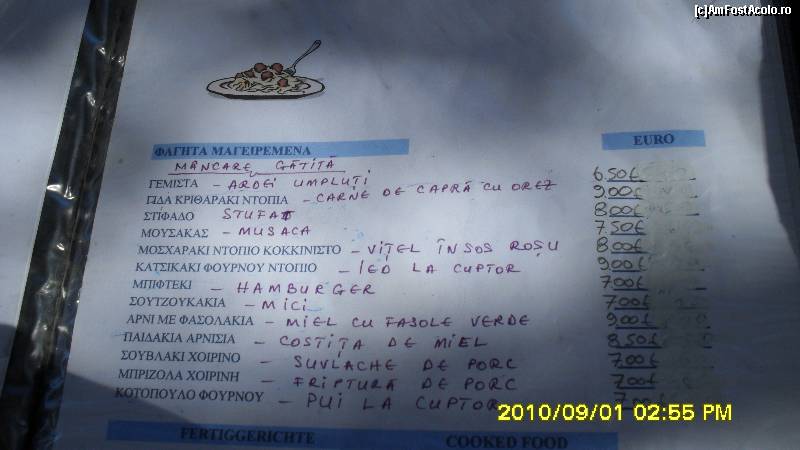 [c]AmFostAcolo.ro
ΦΑΓΗΤΑ ΜΑΓΕΙΡΕΜΕΝΑ EURO
MÂNCARE GĂTITĂ
ΓΕΜΙΣΤΑ - ARDEI UMPLUȚI 6,50€
ΓΙΔΑ ΚΡΙΘΑΡΑΚΙ ΝΤΟΠΙΑ - CARNE DE CAPRĂ CU OREZ 9,00€
ΣΤΙΦΑΔΟ STUFAT 8,00€
ΜΟΥΣΑΚΑΣ - MUSACA 7,50€
ΜΟΣΧΑΡΑΚΙ ΝΤΟΠΙΟ ΚΟΚΚΙΝΙΣΤΟ - VIȚEL ÎN SOS ROȘU 8,00€
ΚΑΤΣΙΚΑΚΙ ΦΟΥΡΝΟΥ ΝΤΟΠΙΟ - IED LA CUPTOR 9,00€
ΜΠΙΦΤΕΚΙ - HAMBURGER 7,00€
ΣΟΥΤΖΟΥΚΑΚΙΑ - MICI 7,00€
ΑΡΝΙ ΜΕ ΦΑΣΟΛΑΚΙΑ - MIEL CU FASOLE VERDE 9,00€
ΠΑΙΔΑΚΙΑ ΑΡΝΙΣΙΑ - COSTIȚA DE MIEL 8,50€
ΣΟΥΒΛΑΚΙ ΧΟΙΡΙΝΟ - SUVLACHE DE PORC 7,00€
ΜΠΡΙΖΟΛΑ ΧΟΙΡΙΝΗ - FRIPTURĂ DE PORC 7,00€
ΚΟΤΟΠΟΥΛΟ ΦΟΥΡΝΟΥ - PUI LA CUPTOR
2010/09/01 02:55 PM
FERTIGGERICHTE COOKED FOOD